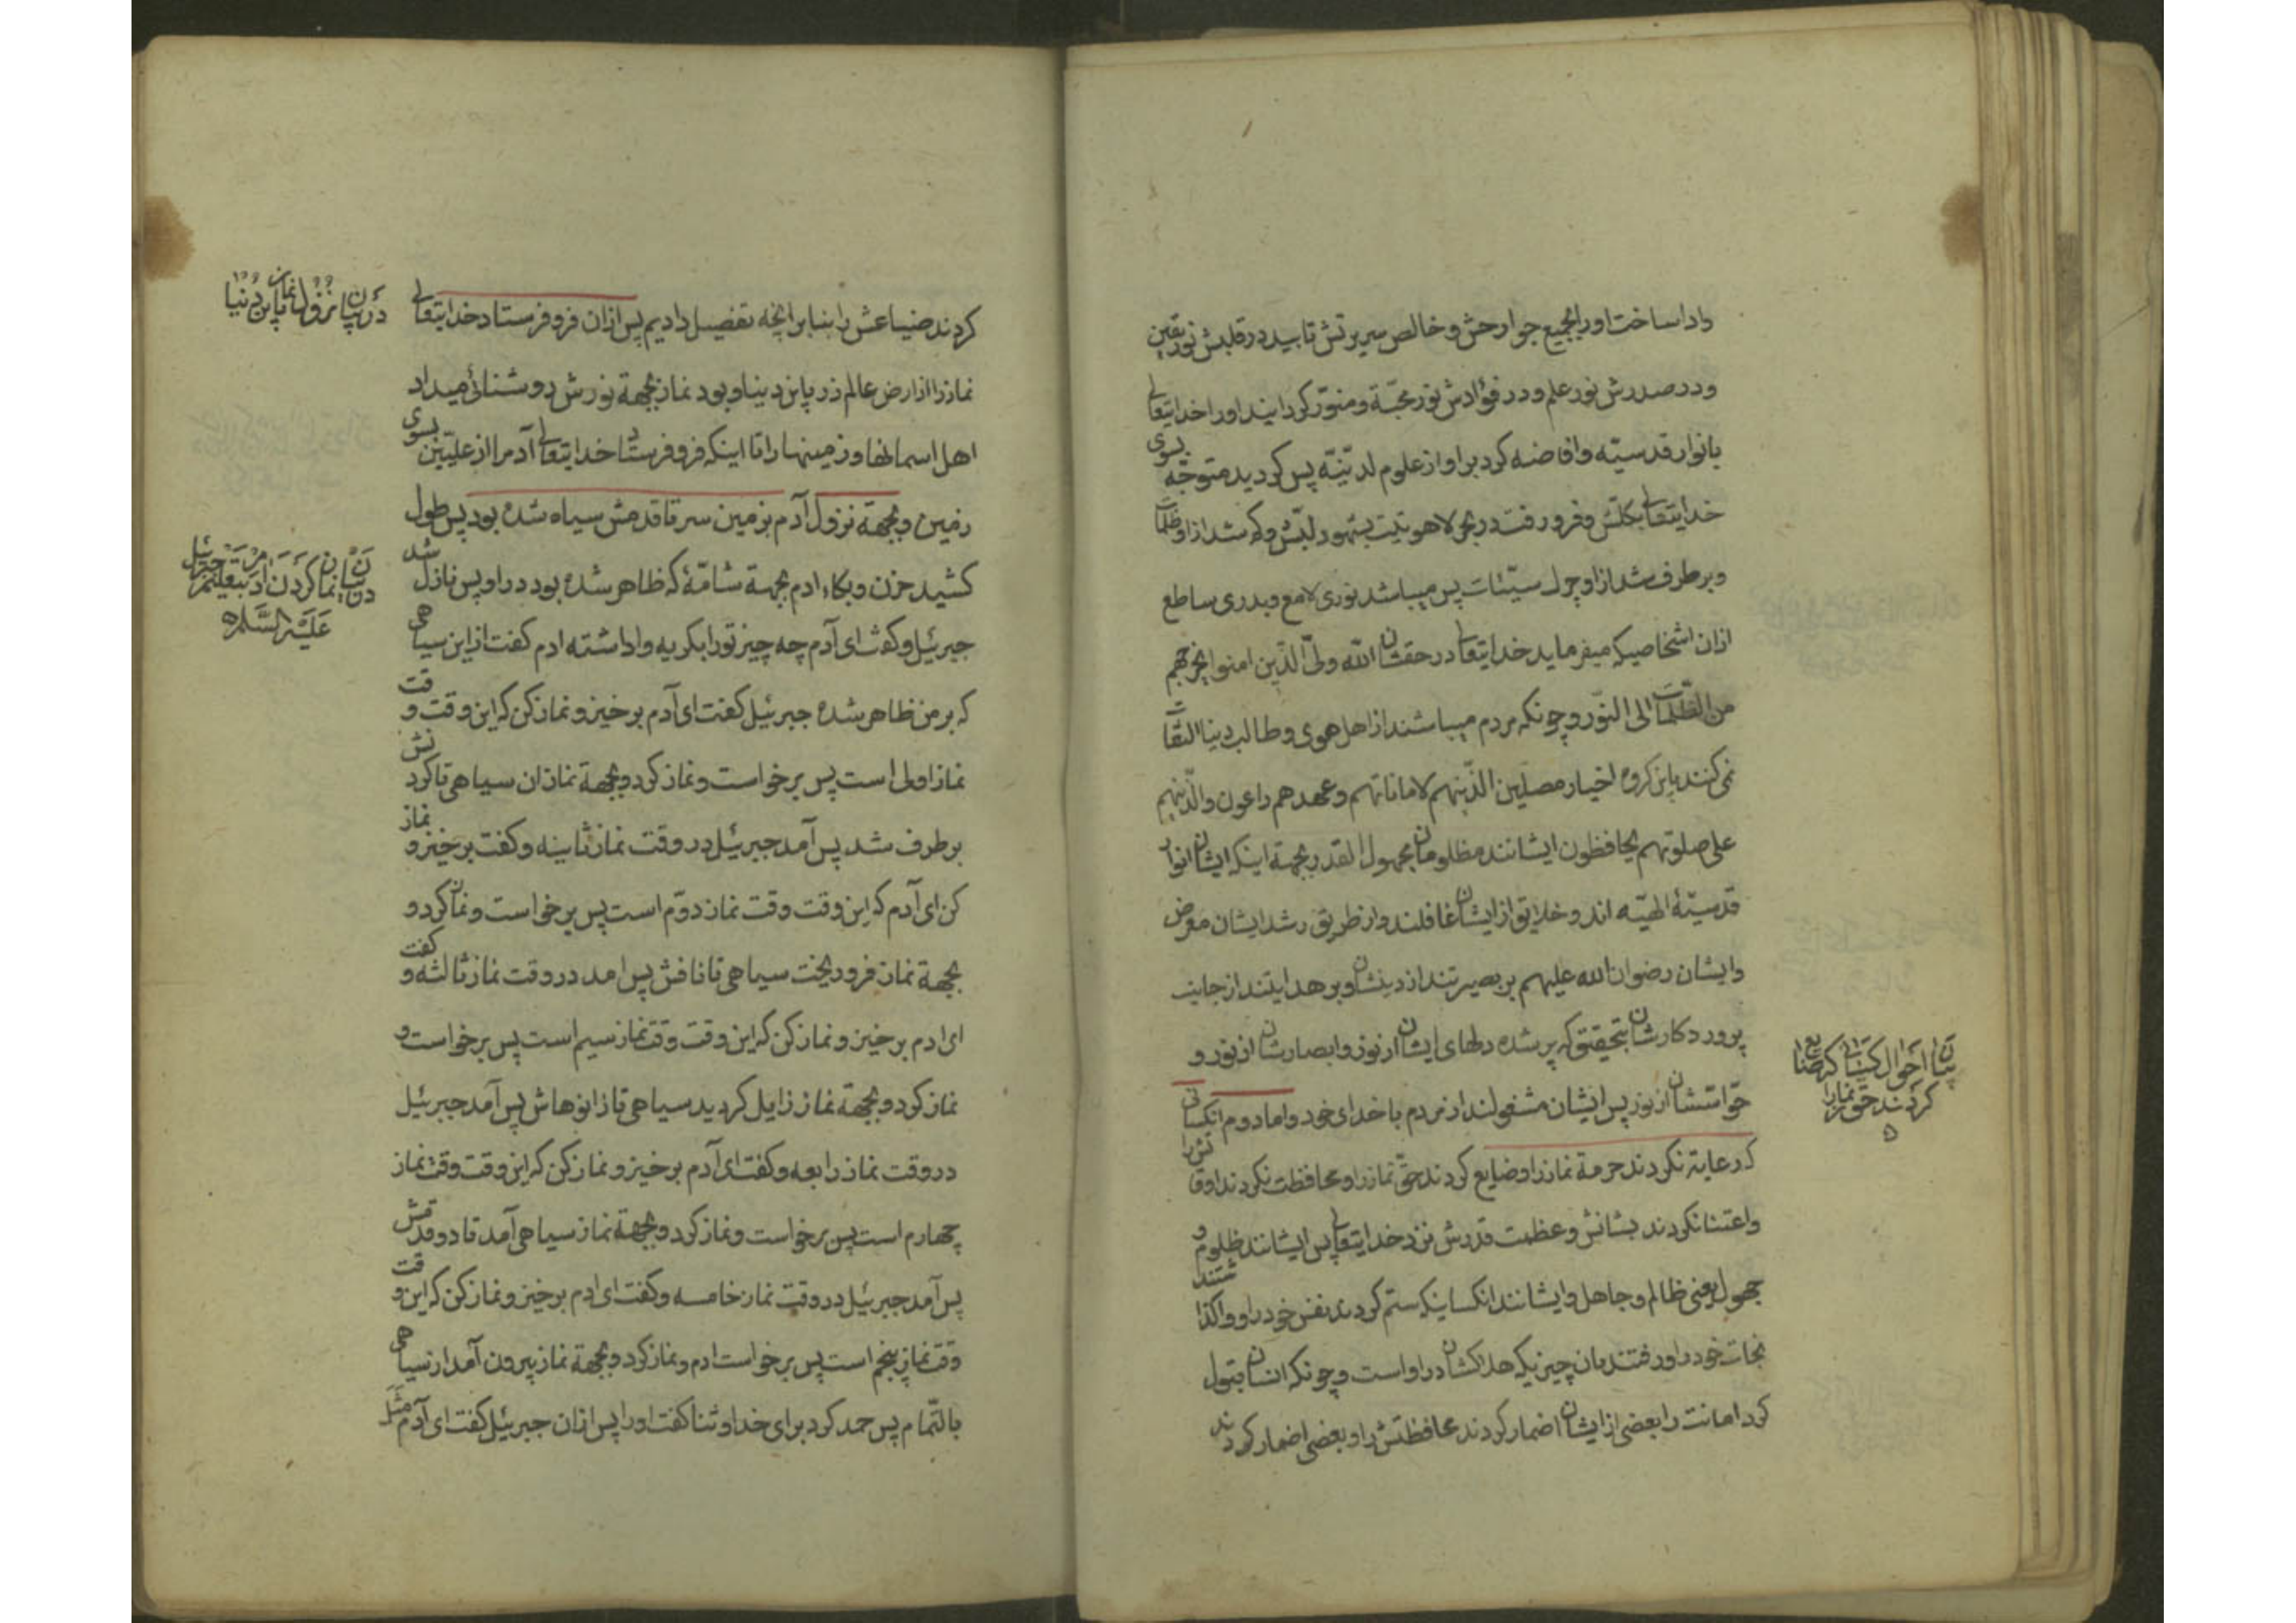 وادا ساخت اورا بجمیع جوارحش و خالص سریرتش تابید در قلبش نور یقین
و در صدرش نور علم و در فؤادش نور محبّة و منوّر کردانید اورا خدایتعالی
بانوار قدسیّه و افاضه کرد براو از علوم لدنّیّه پس کردید متوجّه بسوی
خدایتعالی بکلّش و فرو رفت در بحر لاهوتیّت بشهود لبّش و که شد ازاو ظلمات
و برطرف شد ازاو چرک سیّئات پس میباشد نوری لامع و بدری ساطع
ازان اشخاصیکه میفرماید خدایتعالی در حقشان الله ولیّ الّذین امنوا یخرجهم
من الظّلمات الی النّور و چونکه مردم میباشند از اهل هوی و طالب دنیا التفات
نمی کنند باین کروه اخیار مصلین الّذینهم لاماناتهم و عهدهم راعون والّذینهم
علی صلوتهم یحافظون ایشانند مظلومان مجهول القدر بجهة اینکه ایشان انوار
قدسیّهٔ الهیّه اند و خلایق از ایشان غافلند و از طریق رشد ایشان معرض
و ایشان رضوان الله علیهم بر بصیرتند از دینشان و بر هدایتند از جانب
پروردکارشان بتحقیق که پر شده دلهای ایشان از نور و ابصارشان از نور و
حوّاسّشان از نور پس ایشان مشغولند از مردم با خدای خود و اما دوم انکسانی
که رعایة نکردند حرمة نماز را و ضایع کردند حقّ نماز را و محافظت نکردند اوقاتش را
و اعتنا نکردند بشانش و عظمت قدرش نزد خدایتعالی پس ایشانند ظلوم و
جهول یعنی ظالم و جاهل و ایشانند انکسانیکه ستم کردند نفس خود را و واکذاشتند
نجات خود را و رفتند بان چیزیکه هلاکشان در او است و چونکه انسان قبول
کرد امانت را بعضی از ایشان اضمار کردند محافظتش را و بعضی اضمار کردند
بیان احوال کسانی که ضایع
کردند حق نماز را
کردند ضیاعش را بنا بر انچه تفصیل دادیم پس ازان فرو فرستاد خدایتعالی
نماز را از ارض عالم ذر باین دنیا و بود نماز بجهة نورش روشنائی میداد
اهل اسمانها و زمینها را تا اینکه فرو فرستاد خدایتعالی آدم را از علیّین بسوی
زمین و بجهة نزول آدم بزمین سر تا قدمش سیاه شده بود پس طول
کشید حزن و بکاء ادم بجهة شامّهٔ که ظاهر شده بود در او پس نازل شد
جبرئیل و کفت ای آدم چه چیز تورا بکریه واداشته ادم کفت از این سیاهی
که بر من ظاهر شده جبرئیل کفت ای آدم برخیز و نماز کن که این وقت وقت
نماز اولی است پس برخواست و نماز کرد و بجهة نماز ان سیاهی تا کردنش
برطرف شد پس آمد جبرئیل در وقت نماز ثانیه و کفت برخیز و نماز
کن ای آدم که این وقت وقت نماز دوّم است پس برخواست و نماز کرد و
بجهة نماز فرو ریخت سیاهی تا نافش پس امد در وقت نماز ثالثه و کفت
ای ادم برخیز و نماز کن که این وقت وقت نماز سیم است پس برخواست و
نماز کرد و بجهة نماز زایل کردید سیاهی تا زانوهاش پس آمد جبرئیل
در وقت نماز رابعه و کفت ای آدم برخیز و نماز کن که این وقت وقت نماز
چهارم است پس برخواست و نماز کرد و بجهة نماز سیاهی آمد تا دو قدمش
پس آمد جبرئیل در وقت نماز خامسه و کفت ای ادم برخیز و نماز کن که این وقت
وقت نماز پنجم است پس برخواست ادم و نماز کرد و بجهة نماز بیرون آمد از سیاهی
بالتّمام پس حمد کرد برای خدا و ثنا کفت اورا پس ازان جبرئیل کفت ای آدم مثل
در بیان نزول نماز باین دنیا
در بیان نماز کردن آدم بتعلیم جبرئیل
علیه السلام